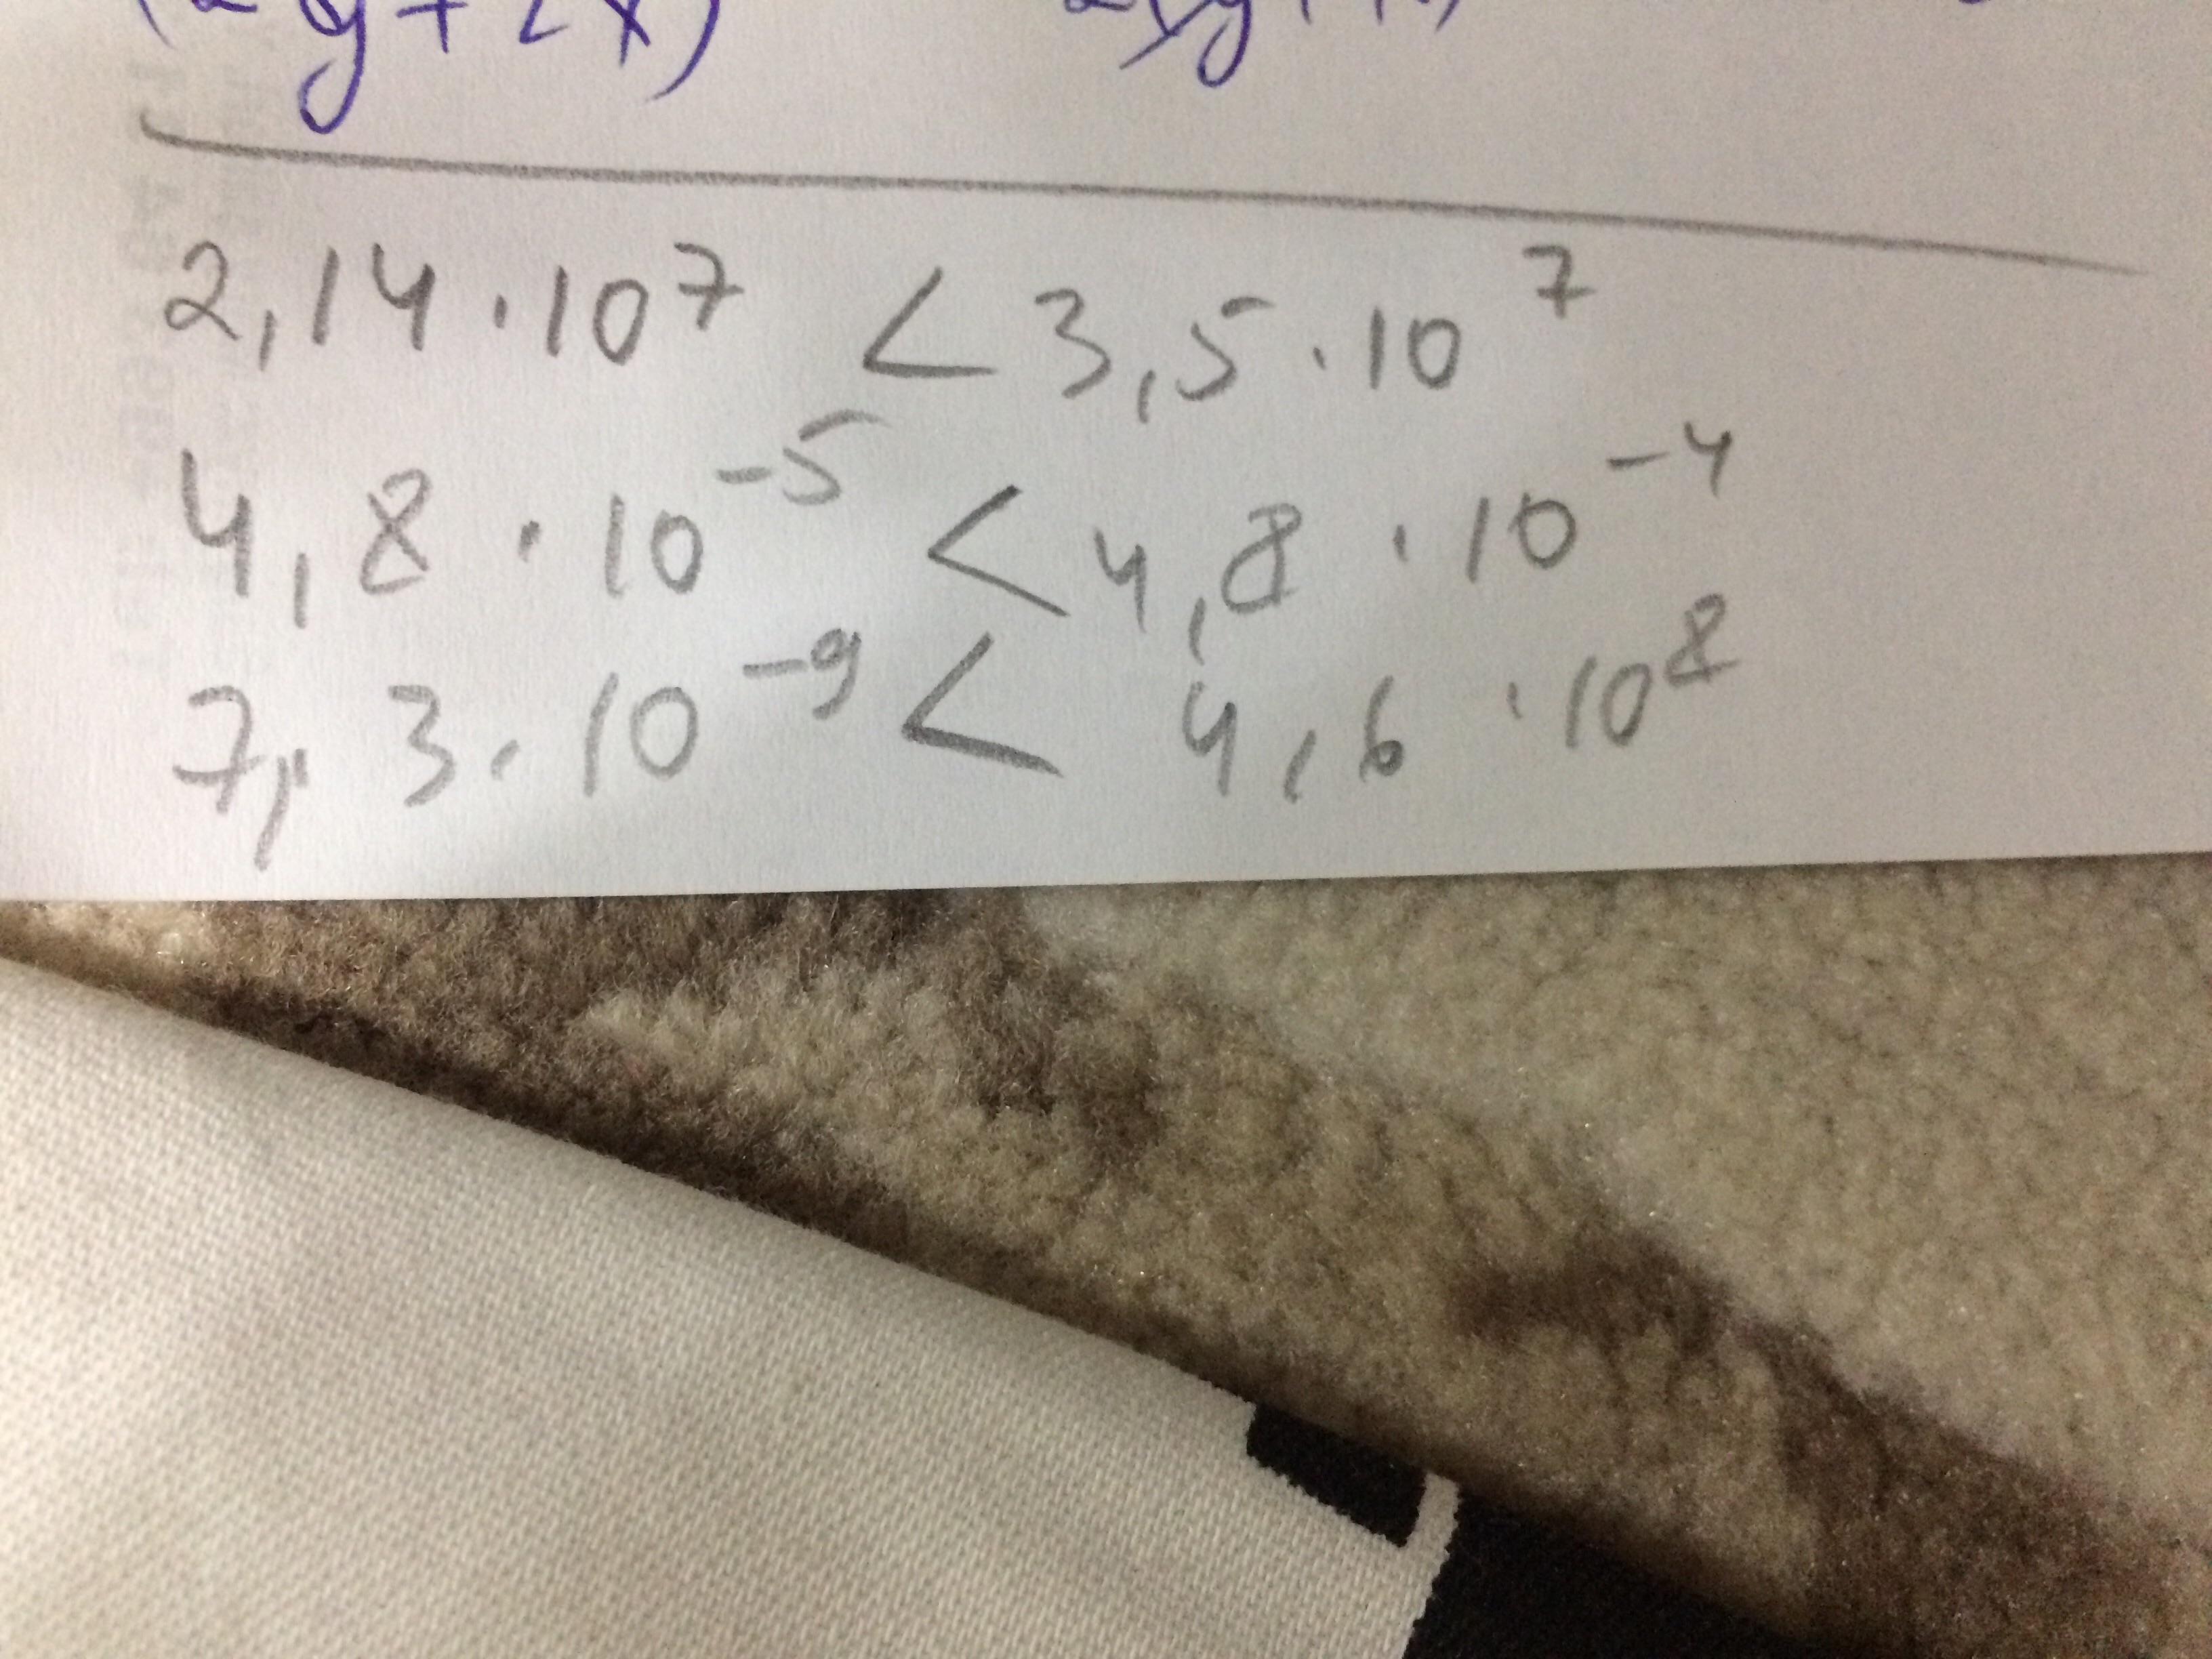 2,14 · 10⁷ < 3,5 · 10⁷
4,8 · 10⁻⁵ < 4,8 · 10⁻⁴
7, 3 · 10⁻⁹ < 4,6 · 10⁸